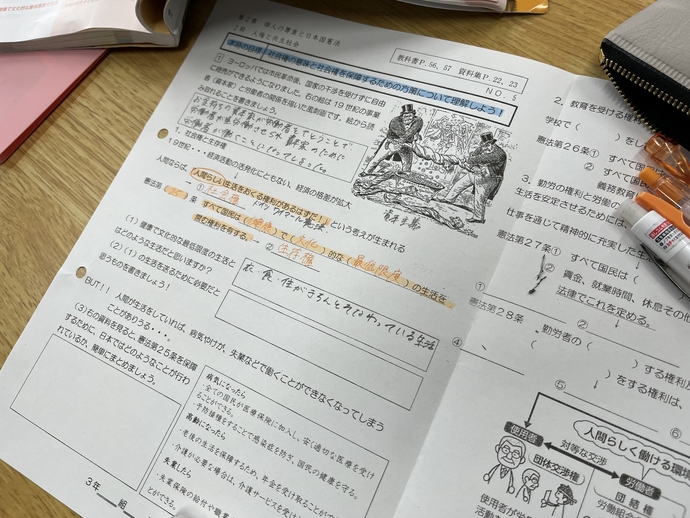 第2章 個人の尊重と日本国憲法
2節 人権と共生社会
教科書P.56,57 資料集P.22,23
NO.5
課題の目標 社会権の意味と社会権を保障するための方策について理解しよう！
① ヨーロッパでは市民革命後、国家の干渉を受けずに自由
に経済ができるようになりました。右の絵は19世紀の事業
家（資本家）と労働者の関係を描いた風刺画です。絵から読
み取れることを書きましょう。
1. 社会権と生存権
19世紀・・・経済活動の活発化にともない、経済の格差が拡大
↓
人間ならば、「人間らしい生活をおくる権利があるはずだ！」という考えが生まれる
→ ① 社会権 ドイツ ワイマール憲法
資本主義
憲法第 25 条 すべて国民は（健康）で（文化）的な（最低限度）の生活を
営む権利を有する。→ ② 生存権
(1) 健康で文化的な最低限度の生活と
はどのような生活だと思いますか？
衣・食・住がきちんとそなわっている生活
(2) (1)の生活を送るために必要だと
思うものを書きましょう！
BUT!! 人間が生活をしていれば、病気やけが、失業などで働くことができなくなってしまう
ことがありうる・・・。
(3) 右の資料を見ると、憲法第25条を保障
するために、日本ではどのようなことが行わ
れているか、簡単にまとめましょう。
病気になったら
・全ての国民が医療保険に加入し、安く適切な医療を受け
ることができる。
・予防接種をすることで感染症を防ぎ、国民の健康を守る。
高齢になったら
・老後の生活を保障するため、年金を受け取ることができ
・介護が必要な場合は、介護サービスを受け
ることができる。
失業したら
・失業保険の給付や職業
とができる。
3年　組
2. 教育を受ける権
学校で（　　）をし
憲法第26条① すべて国
② すべて国
義務教育
3. 勤労の権利と労働の
生活を安定させるためには、
仕事を通じて精神的に充実した生
憲法第27条① すべて国民は（
② 賃金、就業時間、休息その他
法律でこれを定める。
①
②
憲法第28条
③
、勤労者の（　　）する権利
（　　）をする権利は、
④
⑤
⑥
人間らしく働ける環境
使用者
対等な交渉
団体交渉権
労働者
団結権
労働組合
使用者が労
活動